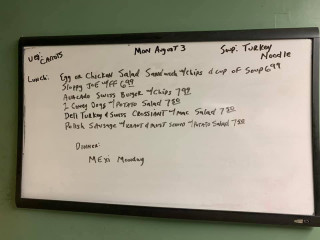 Veg: Carrots
Mon August 3
Soup: Turkey Noodle
Lunch: Egg or Chicken Salad Sandwich w/chips & cup of Soup 6.99
Sloppy Joe w/FF 6.99
Avocado Swiss Burger w/chips 7.99
2 Coney Dogs w/Potato Salad 7.50
Deli Turkey & Swiss Croissant w/mac Salad 7.50
Polish Sausage w/kraut & must served w/Potato Salad 7.50
Dinner:
Mexi Monday